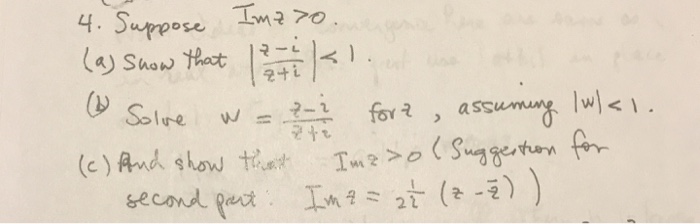 4. Suppose Im z > 0.
(a) Show that |z-i / z+i| < 1.
(b) Solve w = z-i / z+i for z, assuming |w| < 1.
(c) And show that Im z > 0 (Suggestion for
second part: Im z = 1/2i (z - z̄))